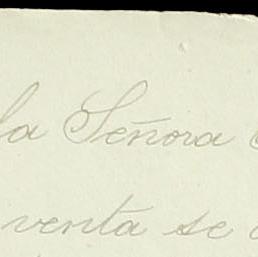 la Señora
venta se